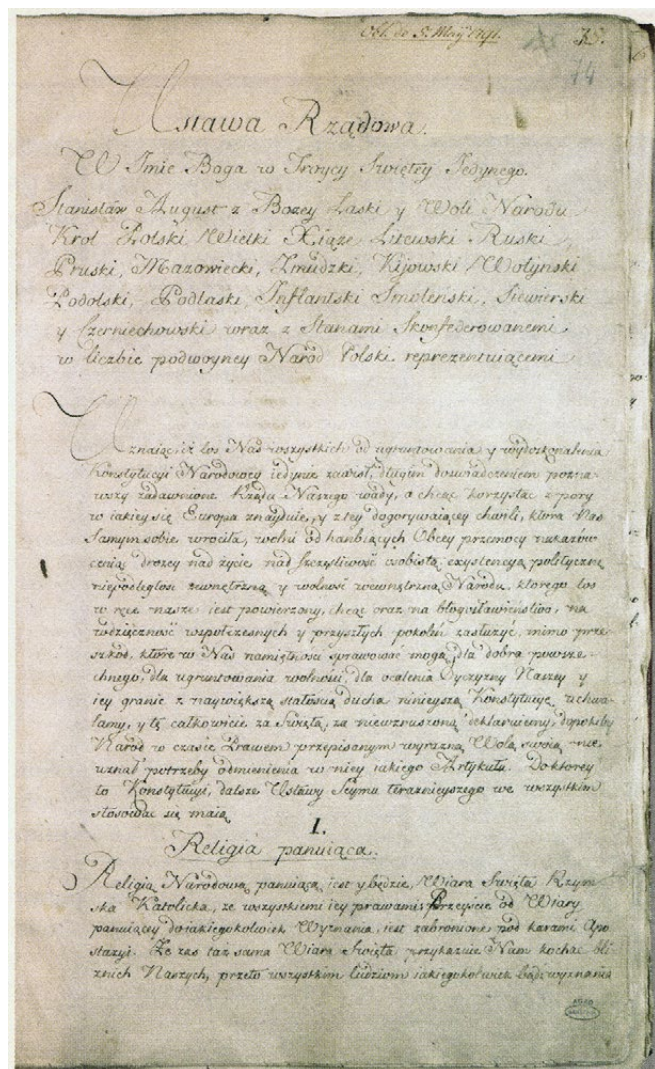 Obl. de 5. Maÿ 1791.
35.
14
Ustawa Rządowa.
W Imie Boga w Troycy Swiętey Jedynego.
Stanisław August z Bozey Łaski y Woli Narodu
Krol Polski Wielki Xiąże Litewski Ruski
Pruski, Mazowiecki, Zmudzki, Kijowski Wołynski
Podolski, Podlaski, Inflantski Smolenski, Siewierski
y Czerniechowski wraz z Stanami Skonfederowanemi
w liczbie podwoyney Naród Polski reprezentuiącemi
Uznaiąc, iż los Nas wszystkich od ugruntowania y wydoskonalenia
Konstytucyi Narodowey iedynie zawisł, długiem doswiadczeniem pozna-
wszy zadawnione Rządu Naszego wady, a chcąc korzystac z pory
w iakiey się Europa znayduie, y z tey dogorywaiącey chwili, ktora Nas
samym sobie wrociła, wolni od hanbiących Obcey przemocy nakazow
ceniąc drozey nad życie, nad szczęsliwość osobistą, exystencyą polityczną
niepodległosc zewnętrzną y wolność wewnętrzną Narodu, ktorego los
w ręce nasze iest powierzony, chcąc oraz na błogosławieństwo, na
wdzięczność wspołczesnych y przyszłych pokoleń zasłużyć, mimo prze-
szkod, ktore w Nas namiętnosci sprawować mogą, dla dobra powsze-
chnego, dla ugruntowania wolności, dla ocalenia Oyczyzny Naszey y
iey granic z naywiększą stałoscią ducha ninieyszą Konstytucyę uchwa-
lamy, y tę całkowicie za Swiętą, za niewzruszoną deklaruiemy, dopokiby
Narod w czasie Prawem przepisanym wyrazną Wolą swoią nie
uznał potrzeby odmienienia w niey iakiego Artykułu. Do ktorey
to Konstytucyi, dalsze Ustawy Seymu teraznieyszego we wszystkim
stosować się maią
1.
Religia panuiąca.
Religią Narodową panuiącą iest y będzie, Wiara Swięta Rzym
ska Katolicka, ze wszystkiemi iey prawami Przeyscie od Wiary
panuiącey do iakiegokolwiek Wyznania, iest zabronione pod karami Apo
stazyi. Ze zas taż sama Wiara Swięta przykazuie Nam kochac bli
znich Naszych, przeto wszystkim ludziom iakiegokolwiek bądz wyznania
AGAD